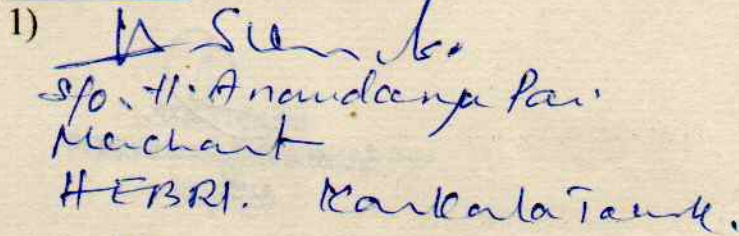 1)
S/o. H. Anandaraya Pai.
Merchant
HEBRI. Karkala Taluk.